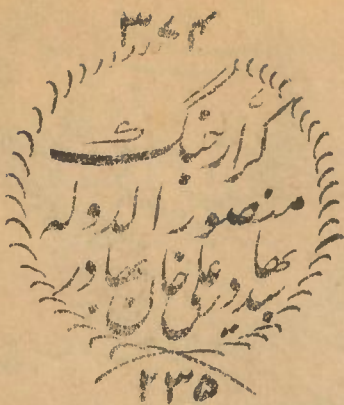 کرار جنگ
منصور الدوله
بهادر سید علی خان بهادر
۲۳۵